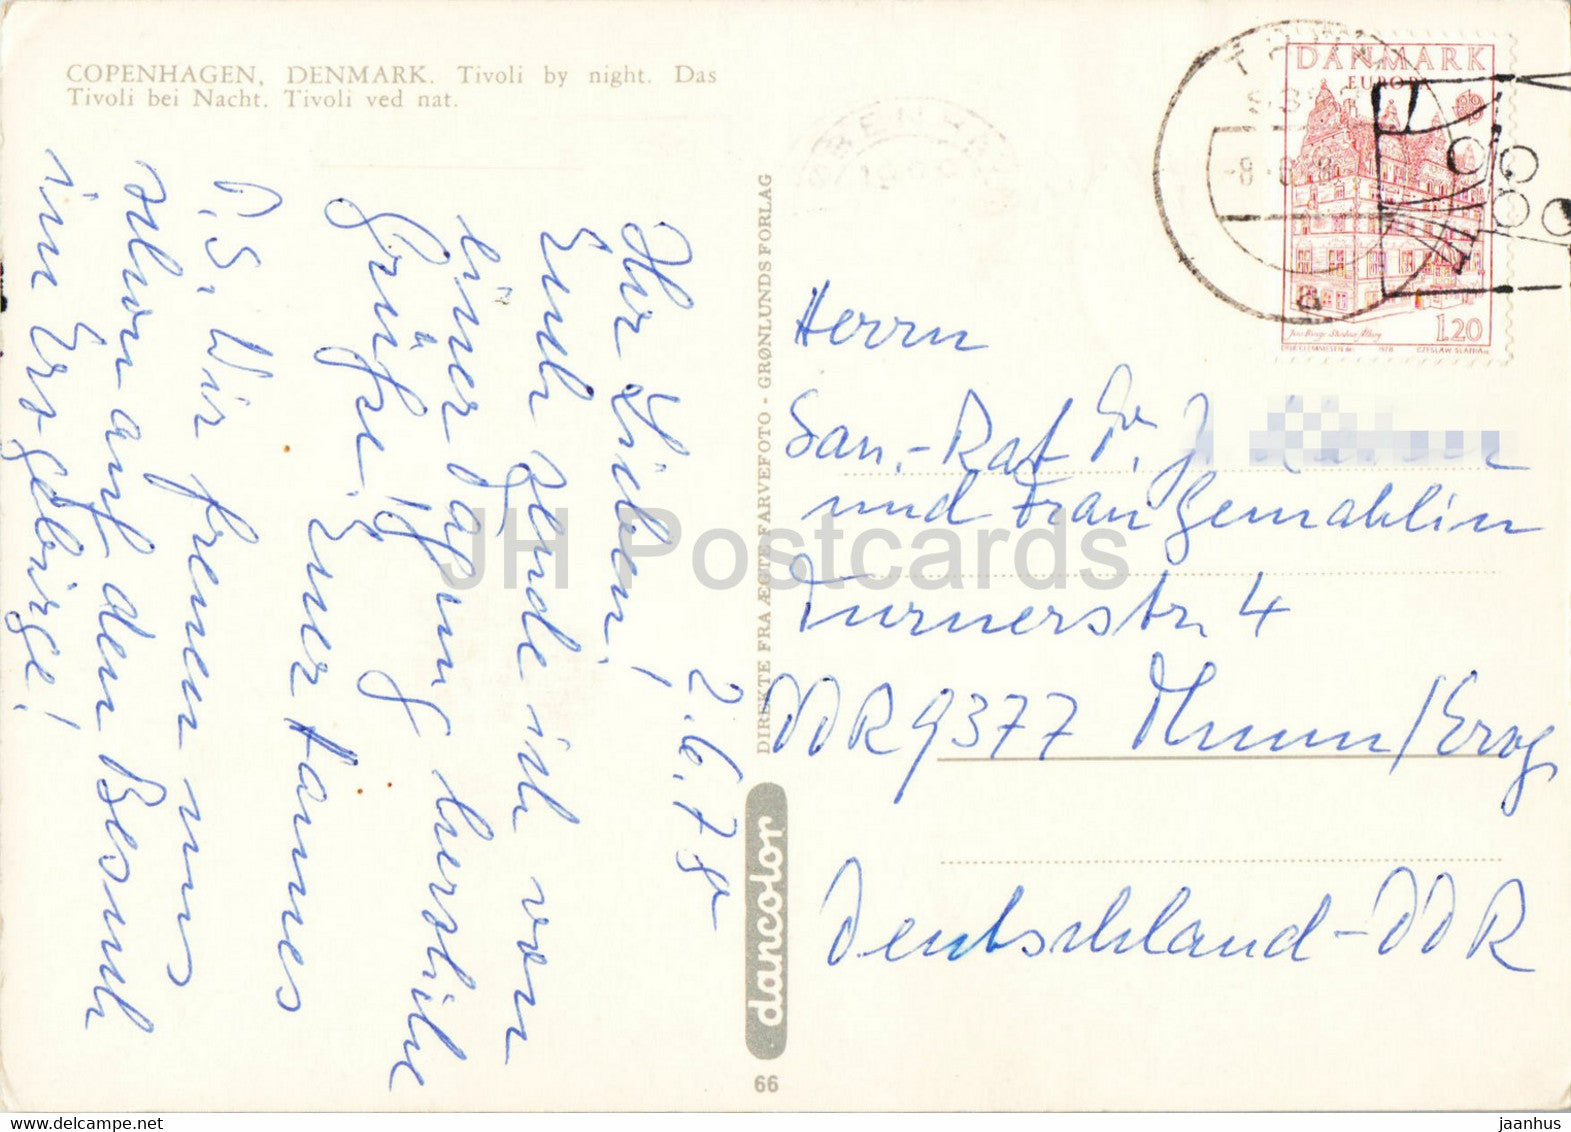 COPENHAGEN, DENMARK. Tivoli by night. Das
Tivoli bei Nacht. Tivoli ved nat.
2.6.78
Ihr Lieben!
Euch sende ich von
einer Tagung herzliche
Grüße! Euer Hannes
P.S. Wir freuen uns
schon auf den Besuch
im Erzgebirge!
DIREKTE FRA ÆGTE FARVEFOTO - GRØNLUNDS FORLAG
dancolor
66
DANMARK
EUROPA
1.20
1978 CZESLAW SLANIA sc.
Herrn
San.-Rat Dr. J.
und Frau Gemahlin
Turnerstr. 4
DDR 9377 Thum/Erzg
Deutschland-DDR
JH Postcards
www.delcampe.net
jaanhus